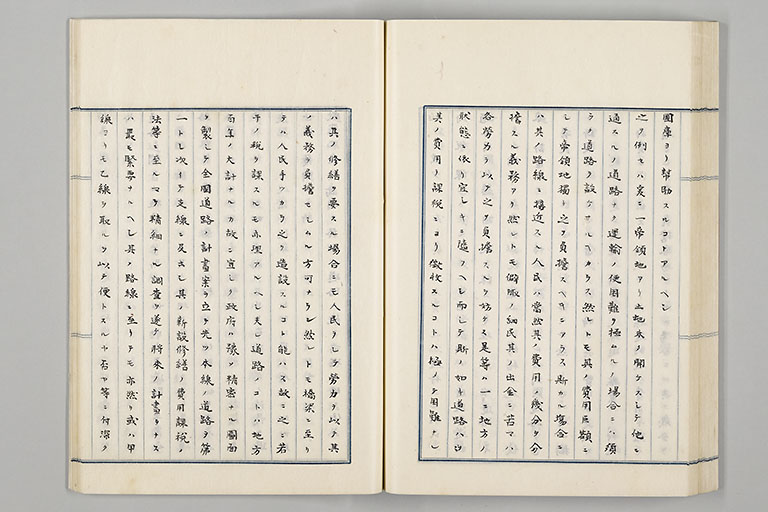 國庫ヨリ幇助スルコトアルヘシ
之ヲ例セハ爰ニ一帝領地アリ土地未タ開ケスシテ他ニ
通スルノ道路ナク運輸ノ便困難ヲ極ムルノ場合ニハ須
ラク道路ヲ設ケサルヘカラス然レトモ其ノ費用巨額ニ
シテ帝領地獨リ之ヲ負擔スヘキニアラス斯カル場合ニ
ハ其ノ路線ニ接近スル人民ハ當然其ノ費用ノ幾分ヲ分
擔スル義務アリ然レトモ僻陬ノ細民其ノ出金ニ苦マハ
各勞力ヲ以テ之ヲ負擔スルヲ妨ケス是等ハ一ニ地方ノ
狀態ニ依リ宜シキニ隨フヘシ而シテ斯ノ如キ道路ハ
其ノ費用ヲ課税ニヨリ徴收スルコトハ極メテ困難ナレ
ハ其ノ修繕ヲ要スル場合ニモ人民ヲシテ勞力ヲ以テ其
ノ義務ヲ負擔セシムル方可ナラン然レトモ橋梁ニ至リ
テハ人民手ツカラ之ヲ造設スルコト能ハス故ニ之ニ若
干ノ税ヲ課スルモ亦理アルヘシ夫レ道路ノコトハ地方
百年ノ大計ナルカ故ニ宜シク政府ハ豫メ精密ナル圖面
ヲ製シテ全國道路ノ計畫案ヲ立テ先ツ本線ノ道路ヲ第
一トシ次イテ支線ニ及ホシ其ノ新設修繕ノ費用課税ノ
法等ニ至ルマテ精細ナル調査ヲ遂ケ將來ノ計畫ヲナス
ハ最モ緊要ナルヘシ其ノ路線ニ至リテモ亦然リ或ハ甲
線ヨリモ乙線ヲ取ルヲ以テ便トスルヤ否ヤ等ニ付深ク